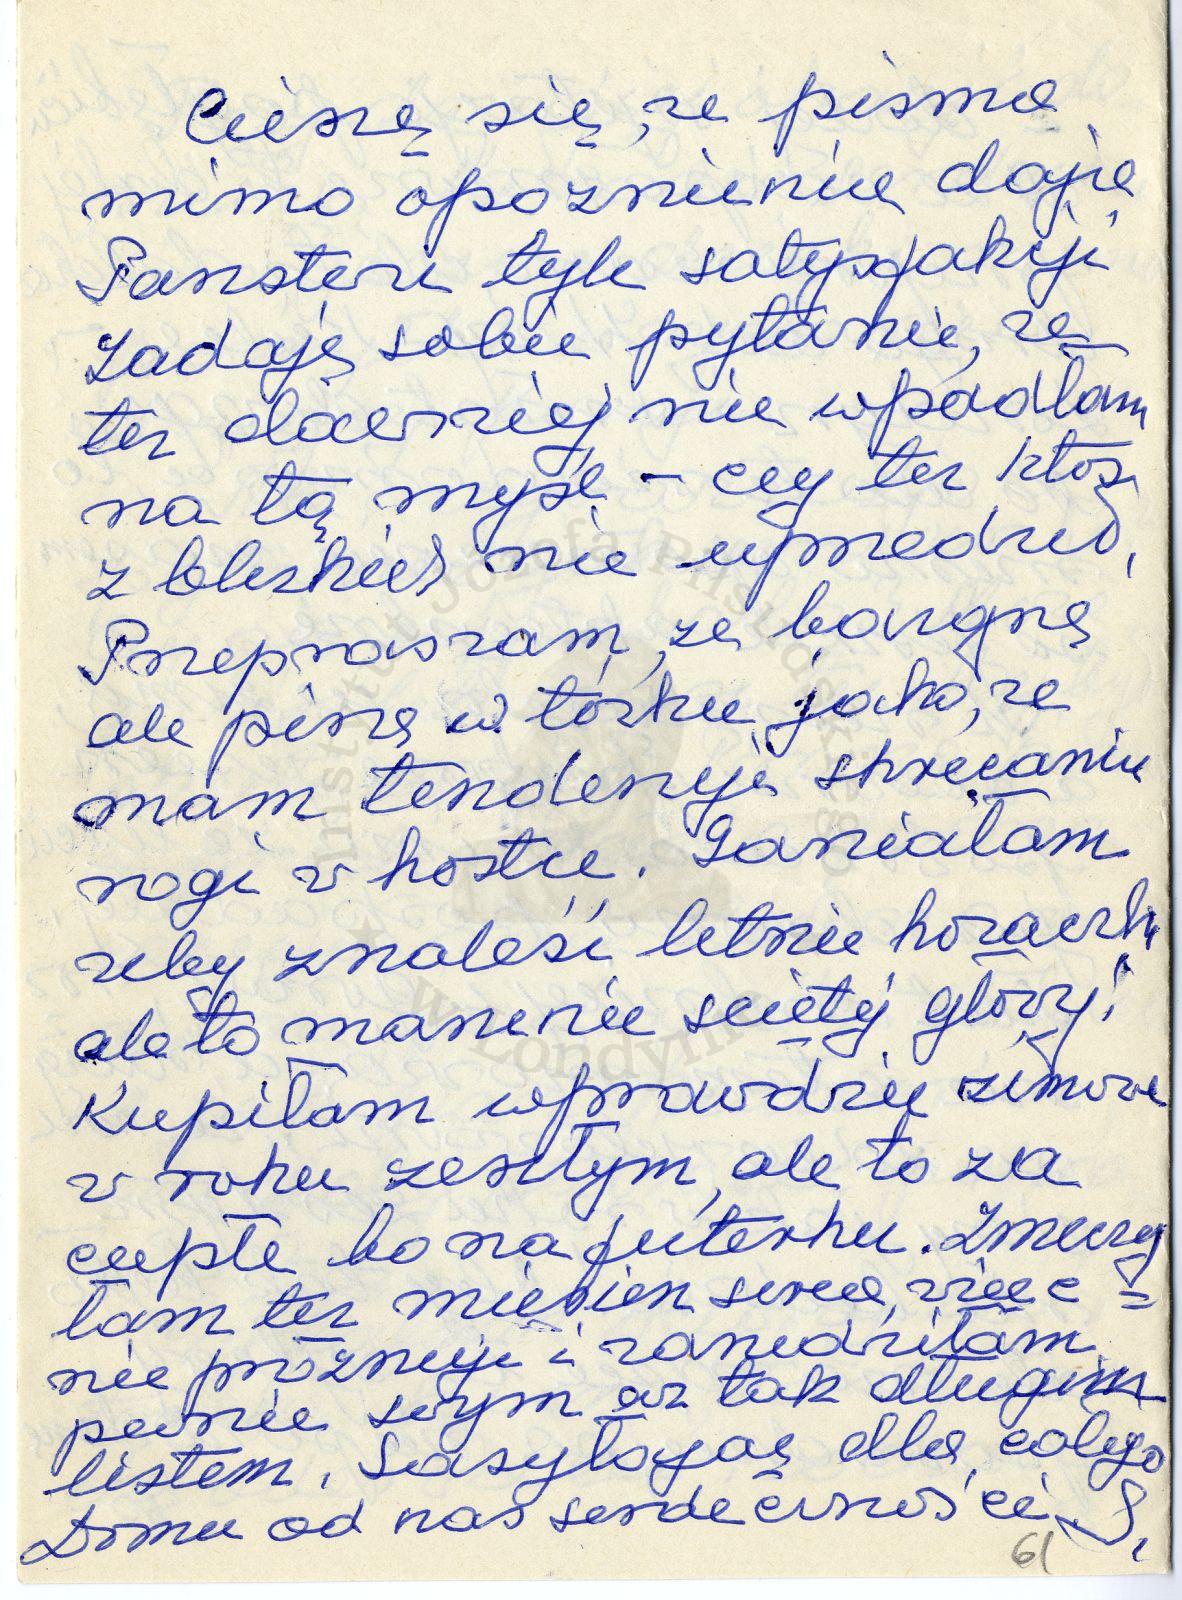 Cieszę się, że pisma
mimo opoznienia dają
Panstwu tyle satysfakcji
Zadaję sobie pytanie, że
też dawniej nie wpadłam
na tą myśl - czy też ktoś
z bliskich nie uprzedził,
Przepraszam, ze bazgrzę
ale piszę w łóżku, jako, że
mam tendencję skręcania
nogi w kostce. Ganiałam
zeby znaleść letnie kozaczki
ale to marzenie sciętej głowy!
Kupiłam wprawdzie zimowe
w roku zeszłym, ale to za
ciepłe bo na futerku. Zmeczy
łam też mięsien serca, więc
nie próżnuję i zanudziłam
pewnie swym aż tak długim
listem. Zasyłając dla całego
Domu od nas serdeczności S.
61
Instytut Józefa Piłsudskiego
w Londynie